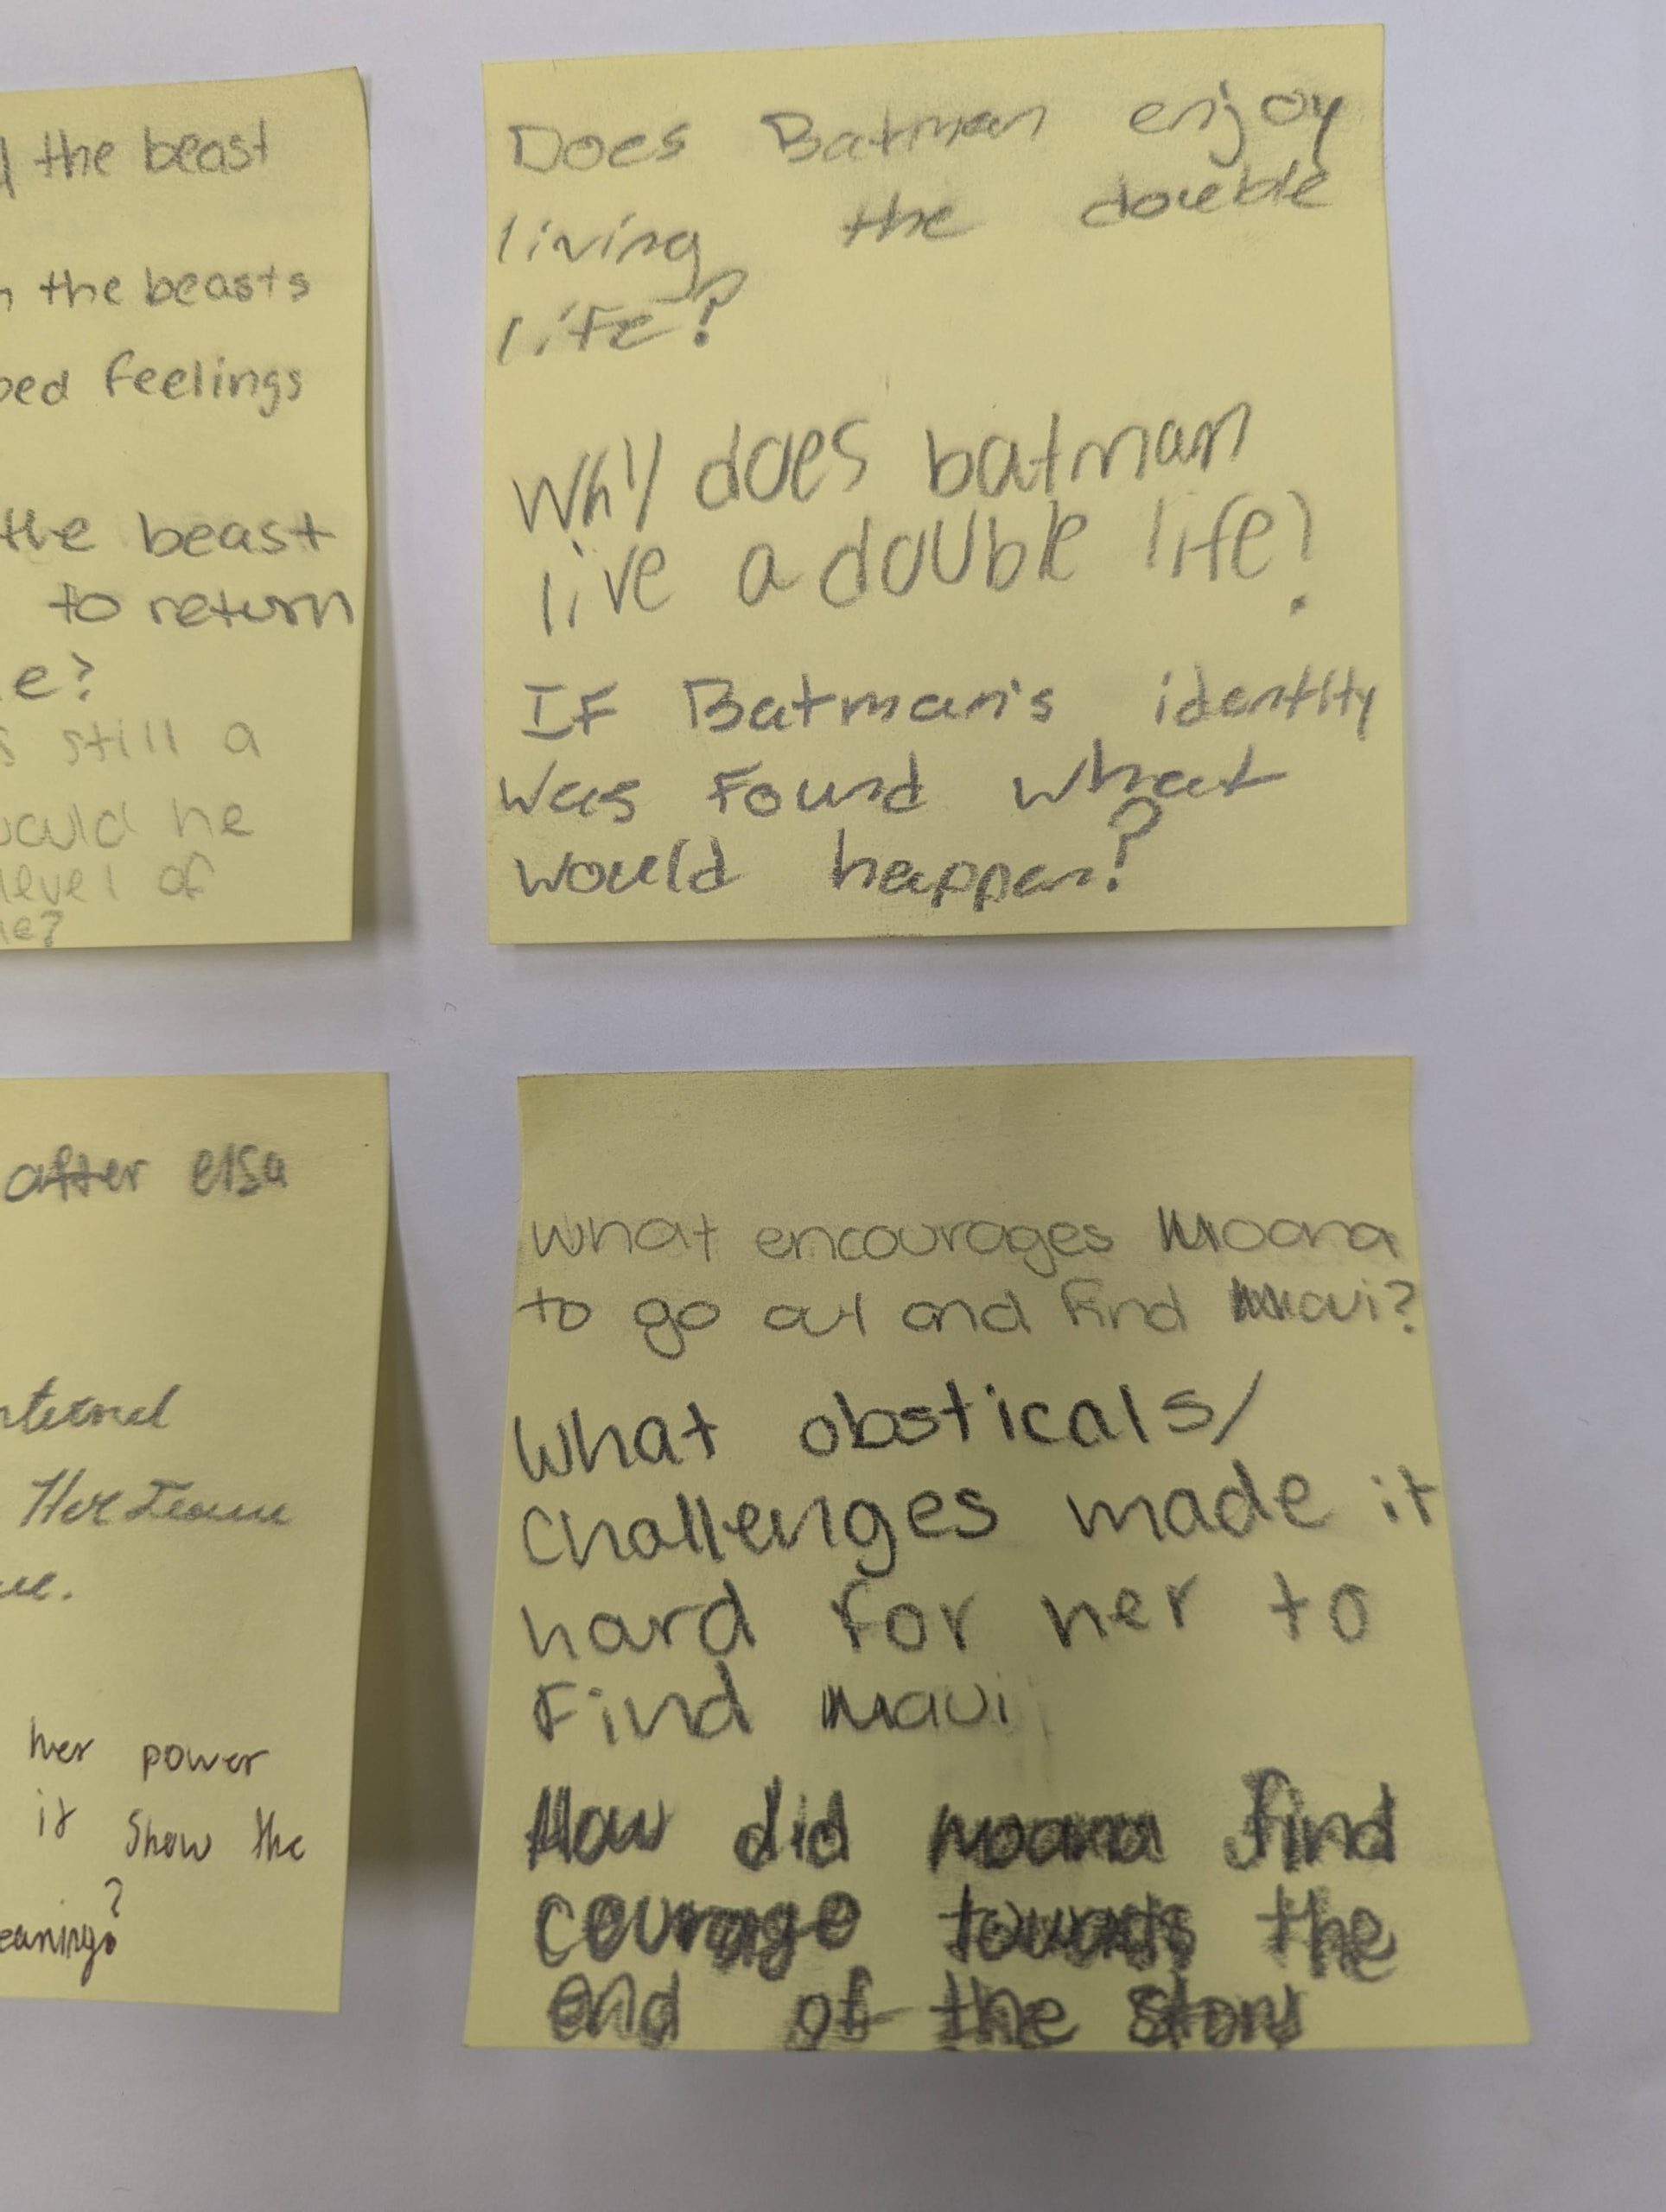 the beast
the beasts
feelings
the beast
to return
e?
still a
he
level of
Does Batman enjoy
living the double
life?
Why does batman
live a double life?
If Batman's identity
was found what
would happen?
after elsa
her power
it show the
What encourages Moana
to go out and find Maui?
What obsticals/
Challenges made it
hard for her to
Find Maui
How did moana find
courage towards the
end of the story